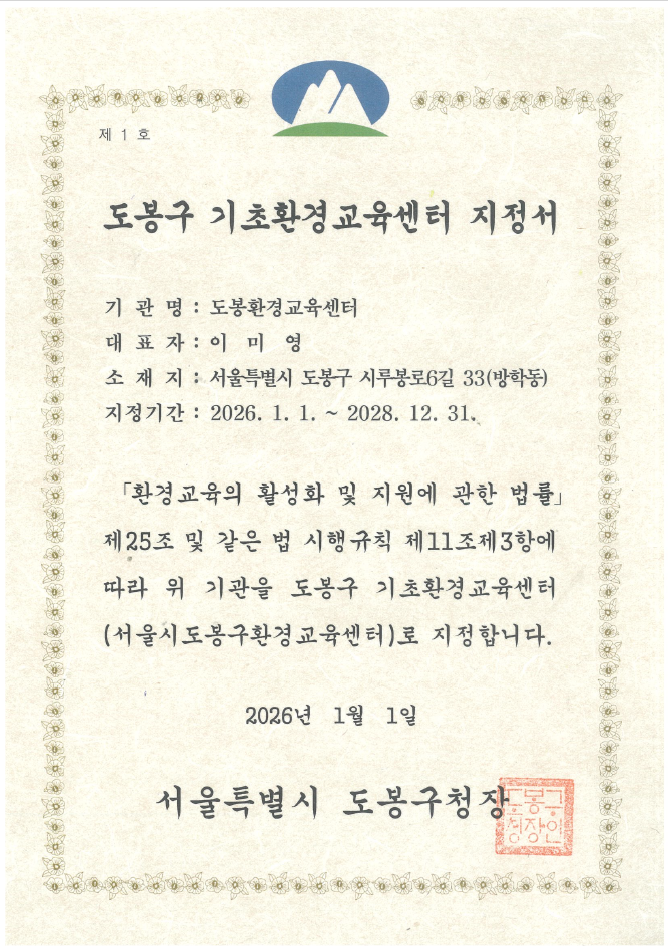 제 1 호
도봉구 기초환경교육센터 지정서
기 관 명 : 도봉환경교육센터
대 표 자 : 이 미 영
소 재 지 : 서울특별시 도봉구 시루봉로6길 33(방학동)
지정기간 : 2026. 1. 1. ~ 2028. 12. 31.
「환경교육의 활성화 및 지원에 관한 법률」
제25조 및 같은 법 시행규칙 제11조제3항에
따라 위 기관을 도봉구 기초환경교육센터
(서울시도봉구환경교육센터)로 지정합니다.
2026년 1월 1일
서울특별시 도봉구청장
도봉구
청장인